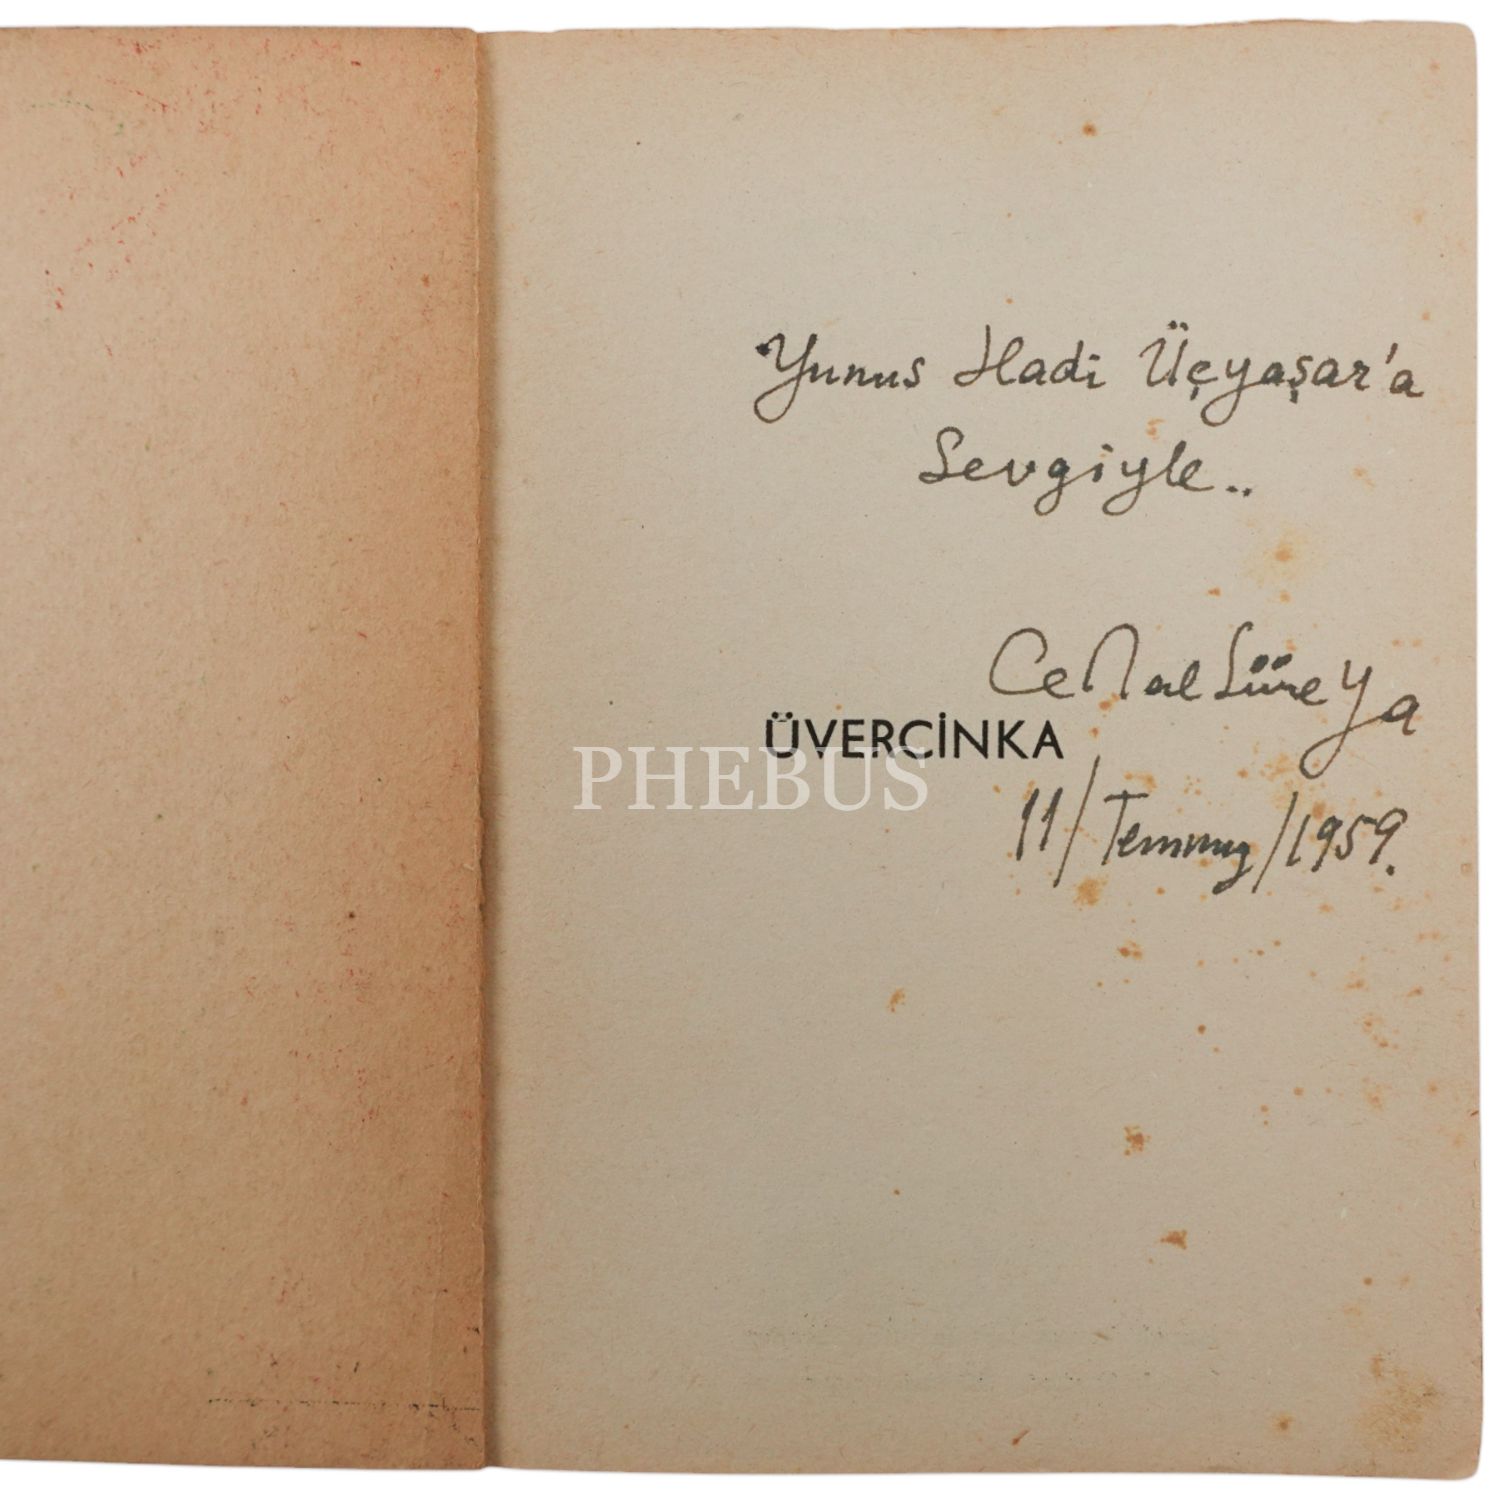 Yunus Hadi Üçyaşar'a
Sevgiyle..
Cemal Süreya
ÜVERCİNKA
PHEBUS
11/Temmuz/1959.